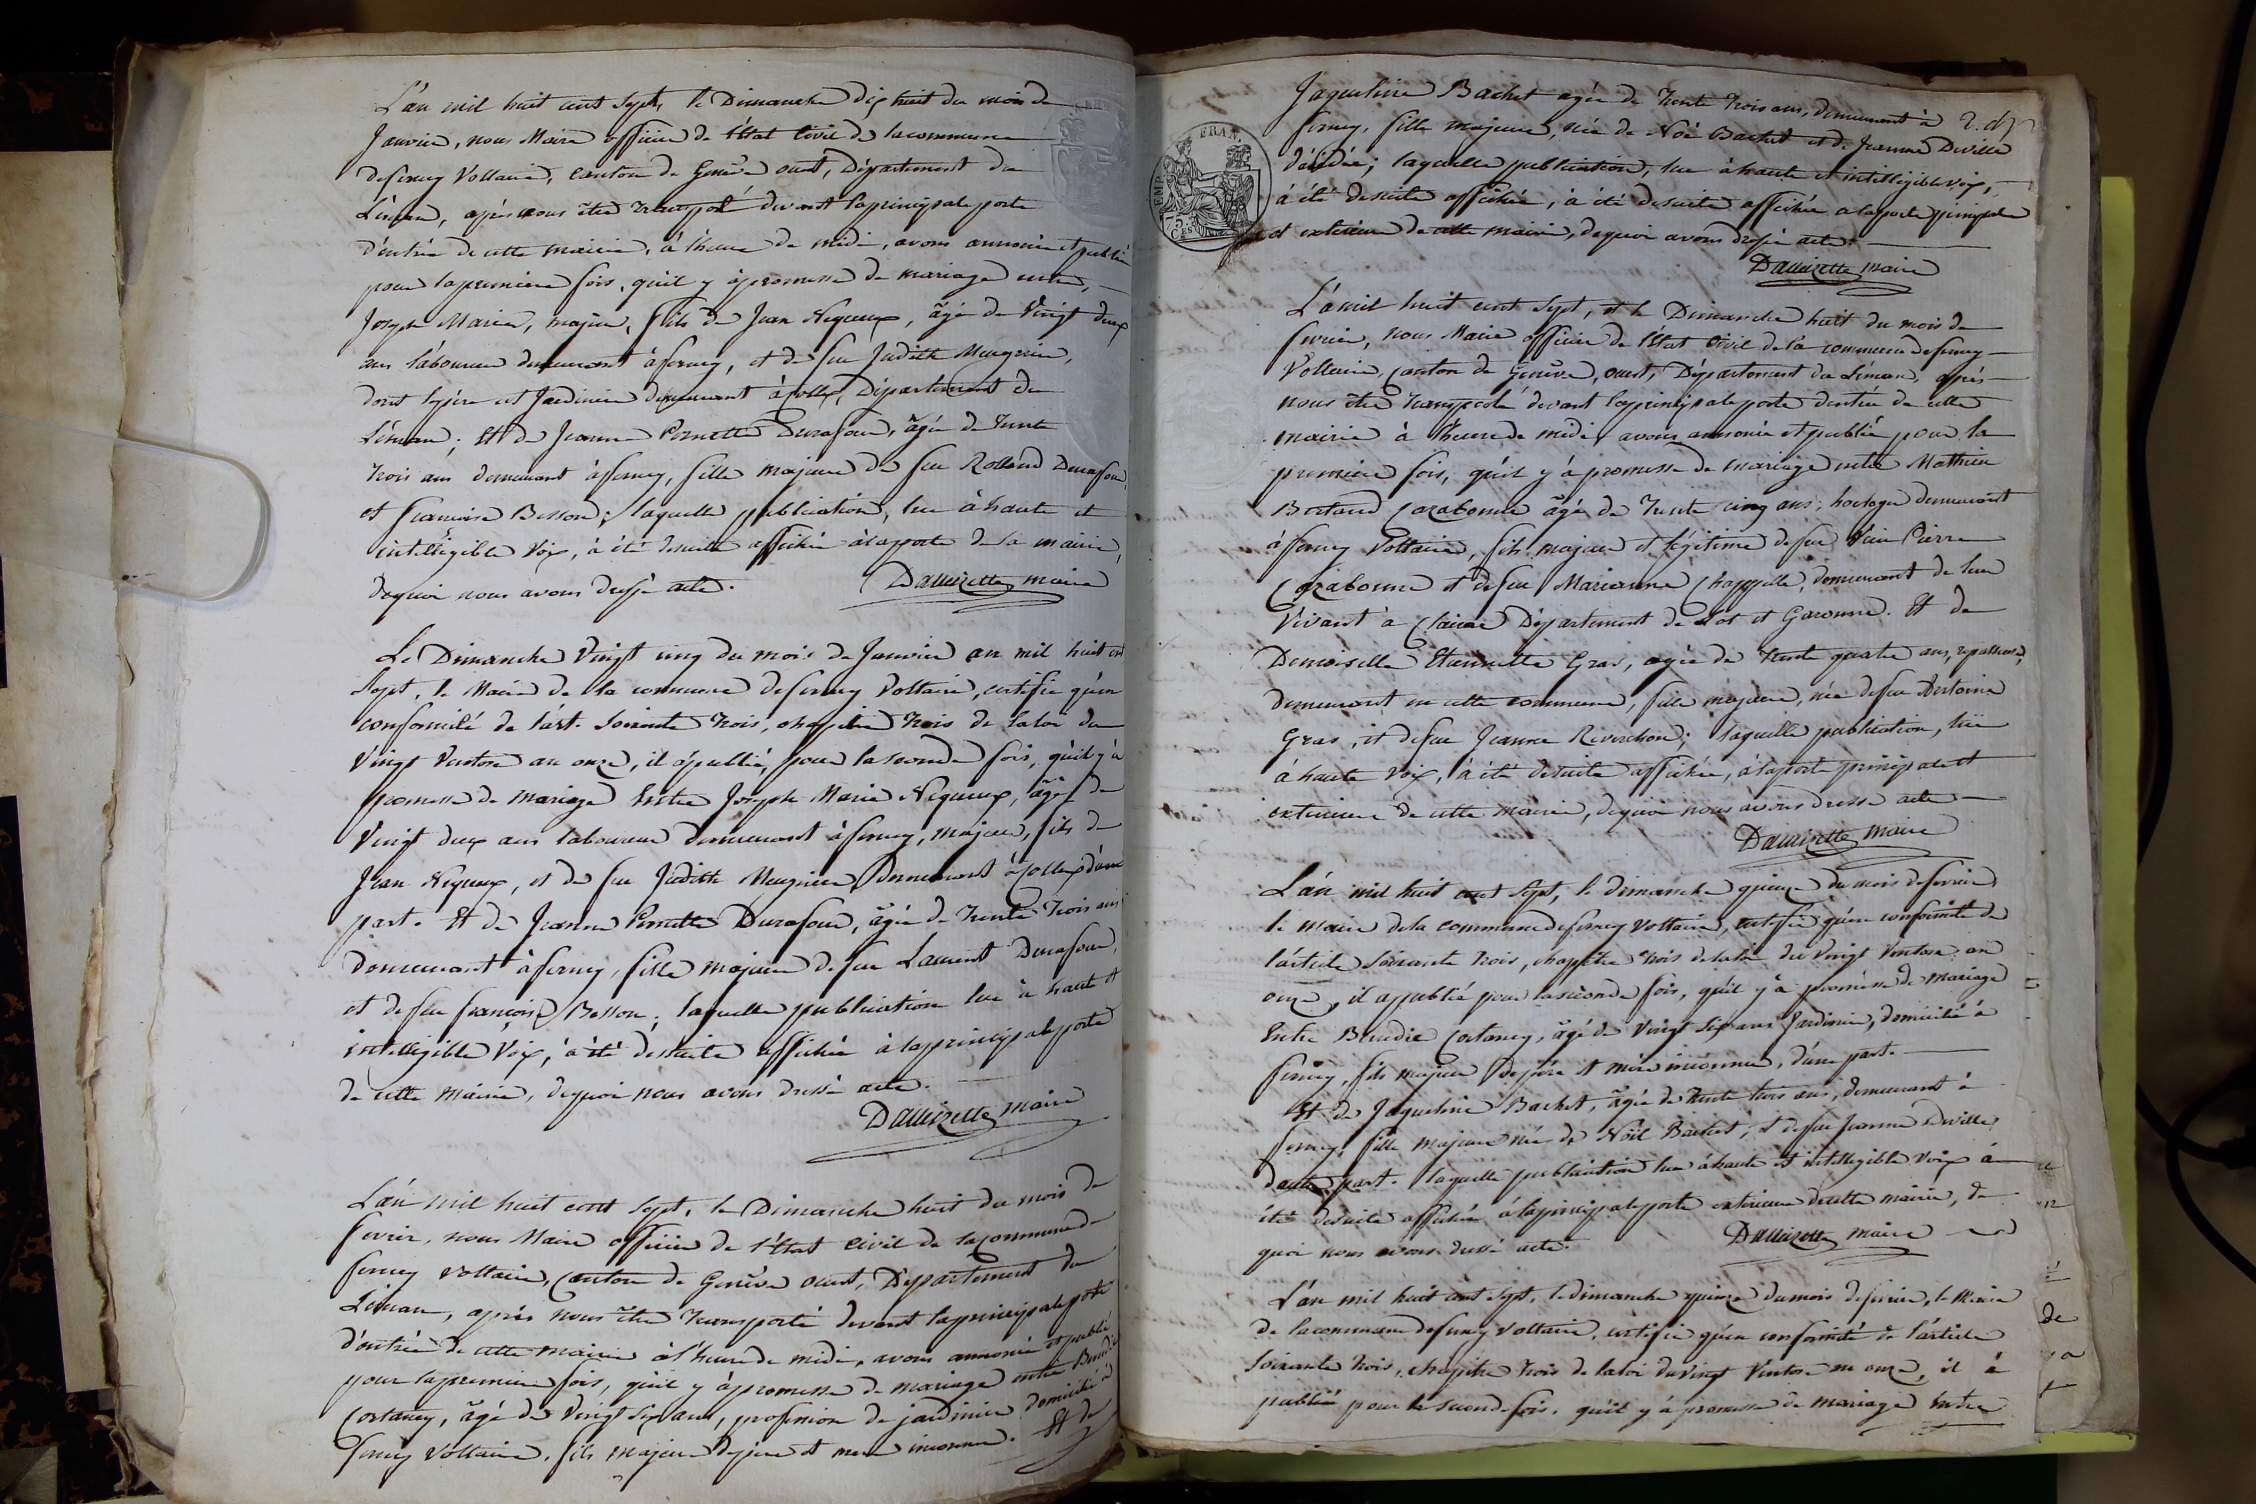 L'an mil huit cent sept, le Dimanche dix huit du mois de
Janvier, nous Maire officier de l'état Civil de la commune
de ferney Voltaire, canton de Genève ouest, Département du
Léman, après nous être transporté devant la principale porte
d'entrée de cette mairie, à l'heure de midi, avons annoncé et publié
pour la premiere fois, quil y à promesse de mariage entre,
Joseph Marie, majeur, fils de Jean Nequeux, âgé de Vingt deux
ans laboureur demeurant à ferney, et de feu Judith Meugnier,
dont le père est Jardinier demeurant à Collex, Département du
Léman; Et de Jeanne Pernette Durafour, âgée de trente
trois ans demeurant à ferney, fille majeure de feu Rolland Durafour,
et françoise Besson; laquelle publication, lue à haute et
intelligible Voix, à été desuite affichée à la porte de la mairie,
dequoi nous avons dressé acte. Dallizette maire
Le Dimanche Vingt cinq du mois de Janvier an mil huit cent
Sept, le Maire de la commune de ferney Voltaire, certifie qu'en
conformité de l'art. Soixante trois, chapitre trois de la loi du
Vingt Ventose an onze, il à publié, pour la seconde fois, qu'il y à
promesse de mariage Entre Joseph Marie Nequeux, âgé de
Vingt deux ans laboureur demeurant à ferney, majeur, fils de
Jean Nequeux, et de feu Judith Meugnier demeurant à Collex d'une
part. Et de Jeanne Pernette Durafour, âgée de trente trois ans
demeurant à ferney, fille majeure de feu Laurent Durafour,
et de feu françoise Besson; laquelle publication lue à haute et
intelligible Voix, à été desuite affichée à la principale porte
de cette mairie, dequoi nous avons dressé acte.
Dallizette maire
L'an mil huit cent sept, le Dimanche huit du mois de
fevrier, nous Maire officier de l'état Civil de la commune de
ferney Voltaire, Canton de Genève ouest, Département du
Léman, après nous être transporté devant la principale porte
d'entrée de cette mairie à l'heure de midi, avons annoncé et publié
pour la premiere fois, qu'il y à promesse de mariage entre
Costaney, âgé de Vingt six ans, profession de jardinier domicilié à
ferney Voltaire, fils majeur de père et mere inconnu. Et de
Jaqueline Bachet agée de trente trois ans, demeurant à
ferney, fille majeure, née de Noé Bachet et de Jeanne Deville
décédée; laquelle publication, lue à haute et intelligible voix,
à été desuite affichée, à été desuite affichée a la porte principale
et exterieure de cette mairie, dequoi avons dressé acte.
Dallizette maire
L'a mil huit cent Sept, et le Dimanche huit du mois de
fevrier, nous Maire officier de l'état Civil de la commune de ferney
Voltaire, Canton de Genève, ouest, Département du Léman, après
nous être transporté devant la principale porte d'entrée de cette
mairie à l'heure de midi, avons annoncé et publié pour la
premiere fois, qu'il y à promesse de mariage entre Mathieu
Bertrand Carabonne âgé de trente cinq ans; horloger demeurant
à ferney Voltaire, fils majeur et légitime de feu Pierre
Carabonne et de feu Marianne Chappelle, demeurant de leur
Vivant à Clairac Département de Lot et Garonne. Et de
Demoiselle Etiennette Gras, agée de trente quatre ans, repasseuse,
demeurant en cette commune, fille majeure, née de feu Antoine
Gras, et de feu Jeanne Reverchon; laquelle publication, lüe
à haute Voix, à été desuite affichée, à la porte principale et
exterieure de cette mairie, dequoi nous avons dressé acte
Dallizette maire
L'an mil huit cent Sept, le dimanche quinze du mois de fevrier,
le maire de la commune de ferney Voltaire, certifie qu'en conformité de
l'article Soixante trois, chapitre trois de la loi du Vingt Ventose an
onze, il a publié pour la seconde fois, qu'il y à promesse de mariage
Entre Costaney, âgé de Vingt Six ans Jardinier, domicilié à
ferney, fils majeur de père et mère inconnu, d'une part.
Et de Jaqueline Bachet, âgée de trente trois ans, demeurant à
ferney, fille majeure née de Noël Bachet, et de feu Jeanne Deville,
d'autre part. laquelle publication lue à haute et intelligible voix à
été desuite affichée à la principale porte exterieure de cette mairie, de
quoi nous avons dressé acte. Dallizette maire
L'an mil huit cent Sept, le dimanche quinze du mois de fevrier, le Maire
de la commune de ferney Voltaire, certifie qu'en conformité de l'article
Soixante trois, chapitre trois de la loi du Vingt Ventose an onze, il à
publié pour la seconde fois, qu'il y à promesse de mariage Entre